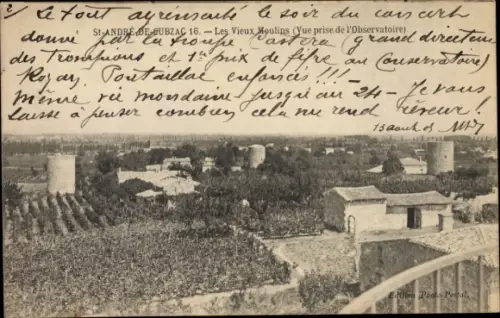 2/ Le tout agrémenté le soir du concert
St-ANDRÉ-DE-CUBZAC 16. — Les Vieux Moulins (Vue prise de l'Observatoire)
donné par la troupe Castera (grand directeur
des Trompions et 1er prix de fifre au Conservatoire)
Royan Pontaillac enfoncés!!! —
même vie mondaine jusqu'au 24 — Je vous
laisse à penser combien cela me rend rêveur!
15 août 03
Edition Photo-Portal